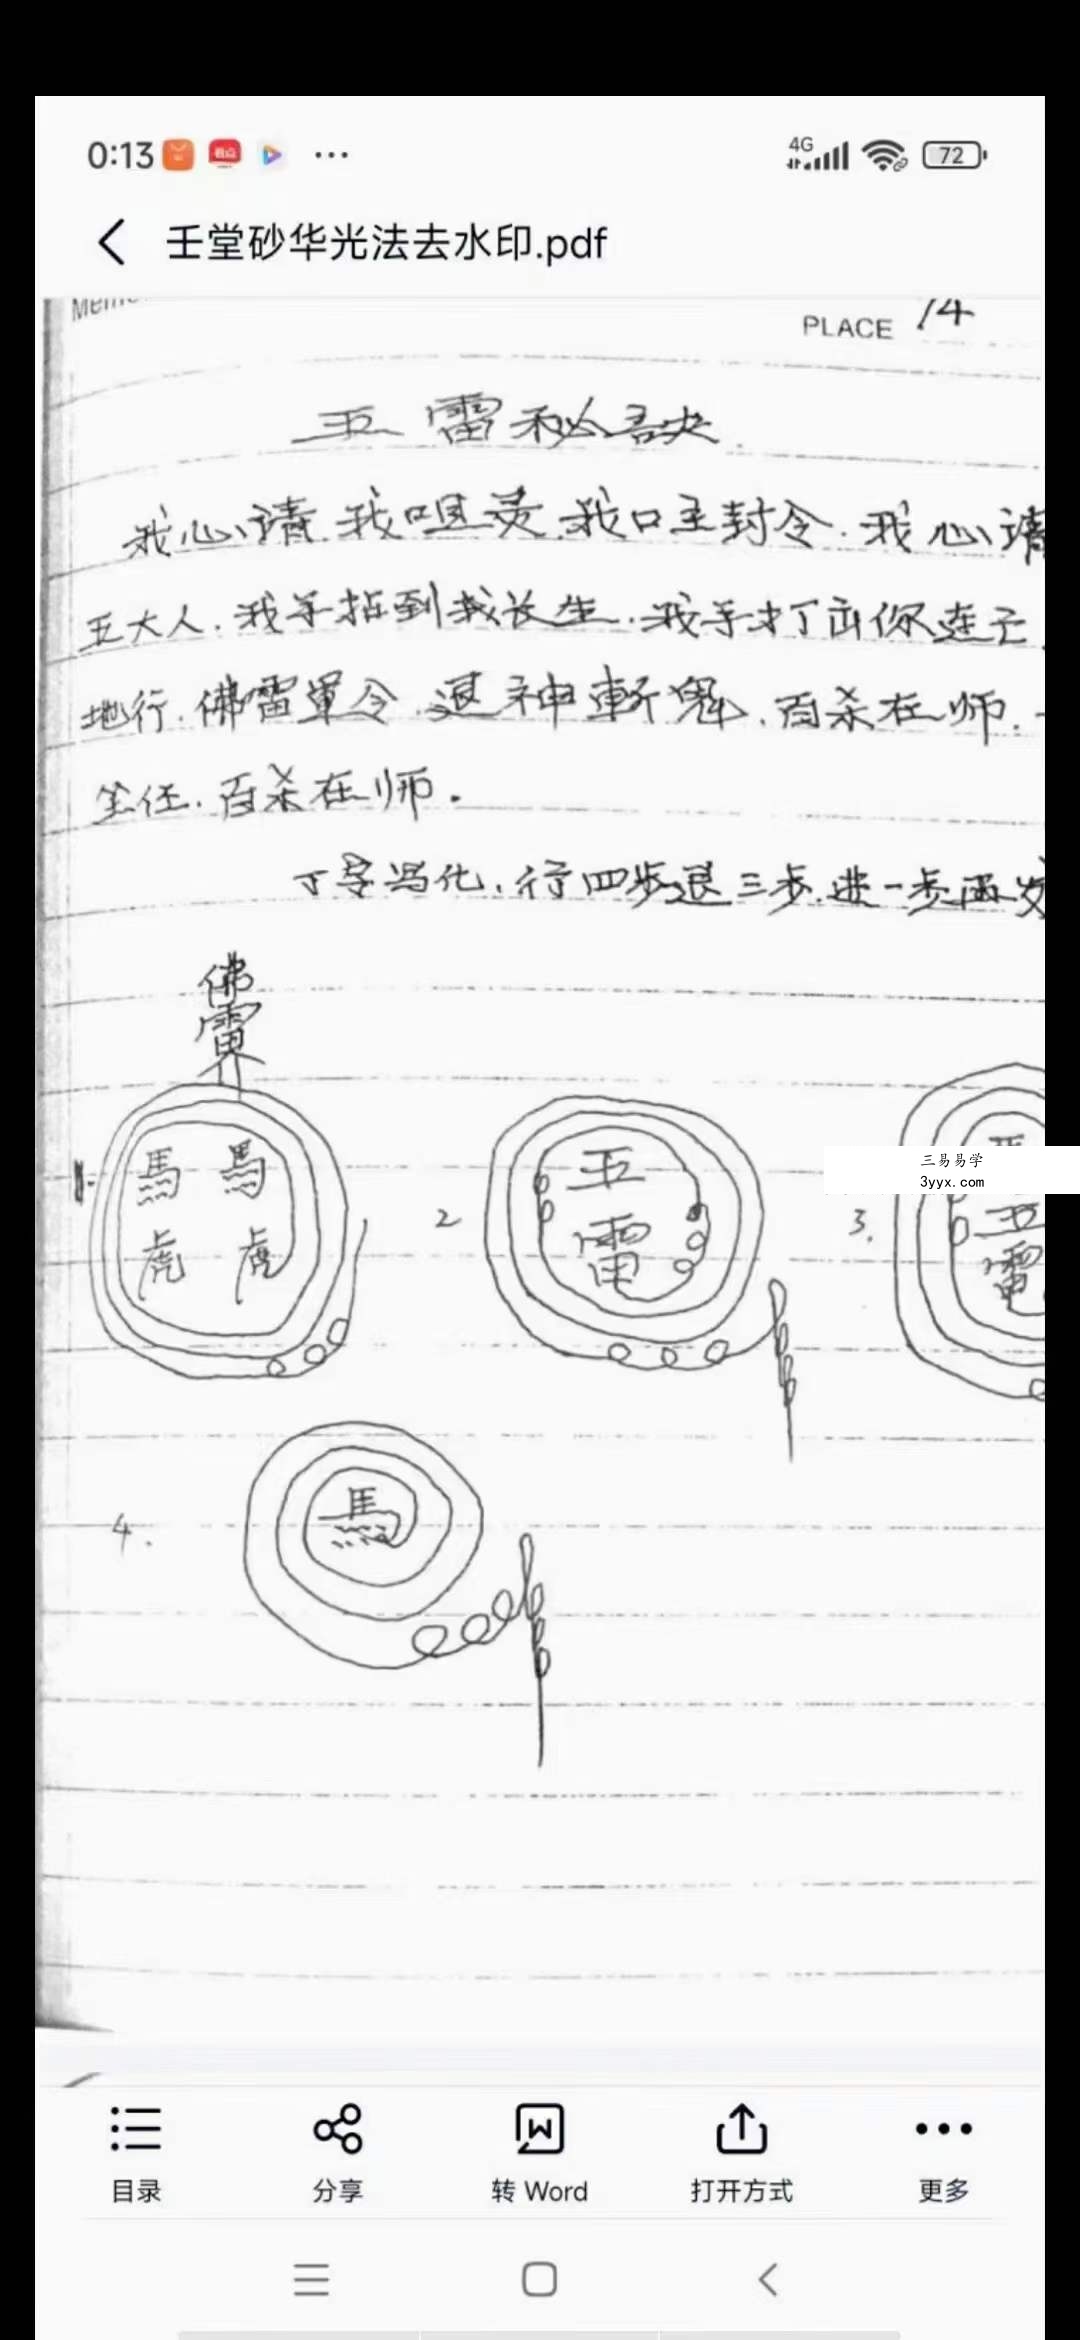 0:13
4G
72
壬堂砂华光法去水印.pdf
PLACE 14
五雷秘訣
我心请.我咀灵.我口至封令.我心请
五大人.我手拈到我长生.我手打出你连亡
地行.佛雷軍令.退神斬鬼.百杀在师.
坐任.百杀在师.
丁字冯化.行四步退三步.进一步再发
佛
雷
1.
馬 馬
虎 虎
2
五
雷
3.
五
雷
三易易学
3yyx.com
4.
馬
目录
分享
转 Word
打开方式
更多